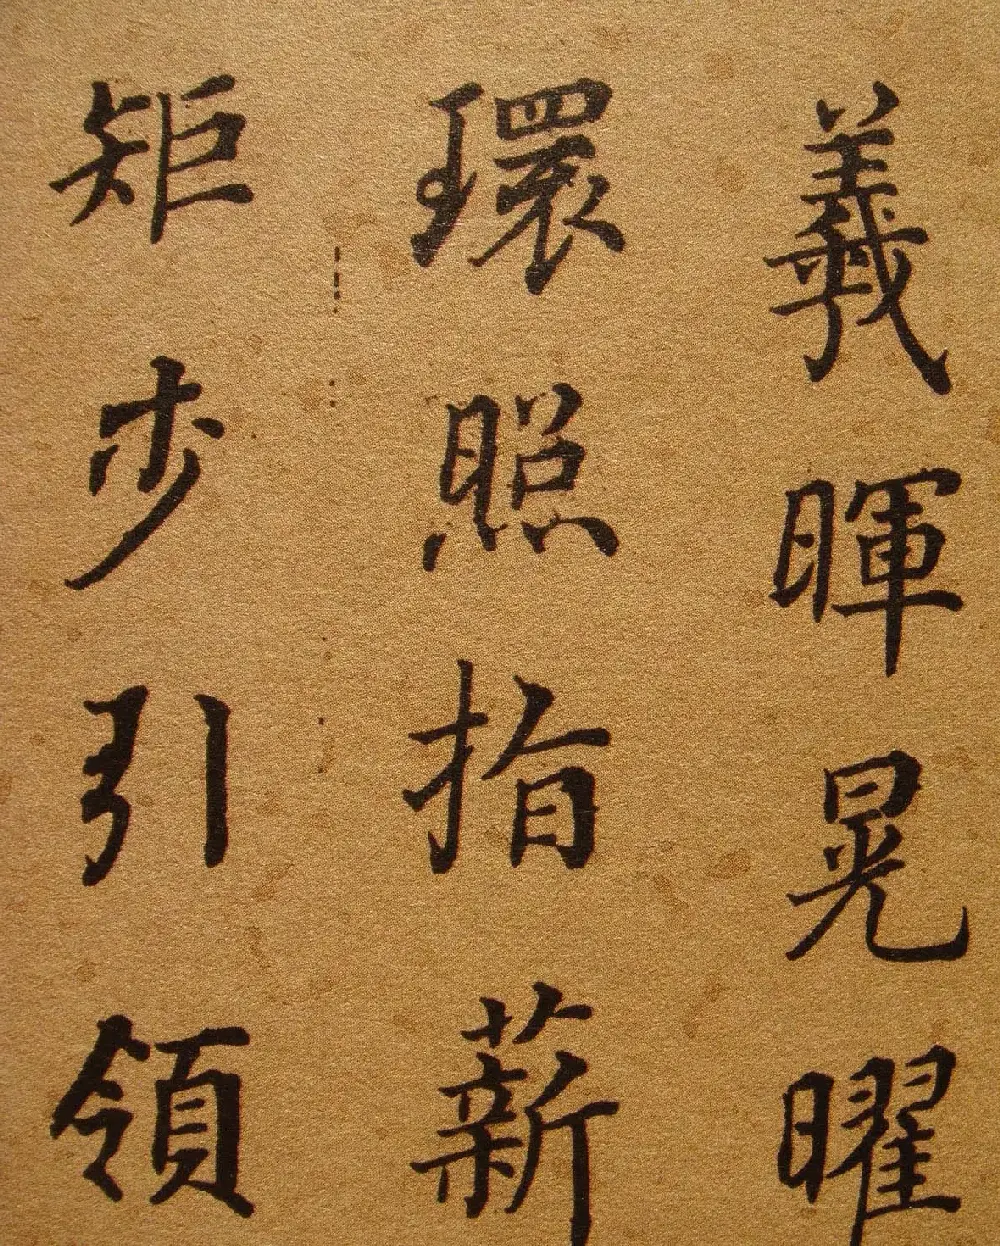 羲暉晃曜
環照指薪
矩步引領